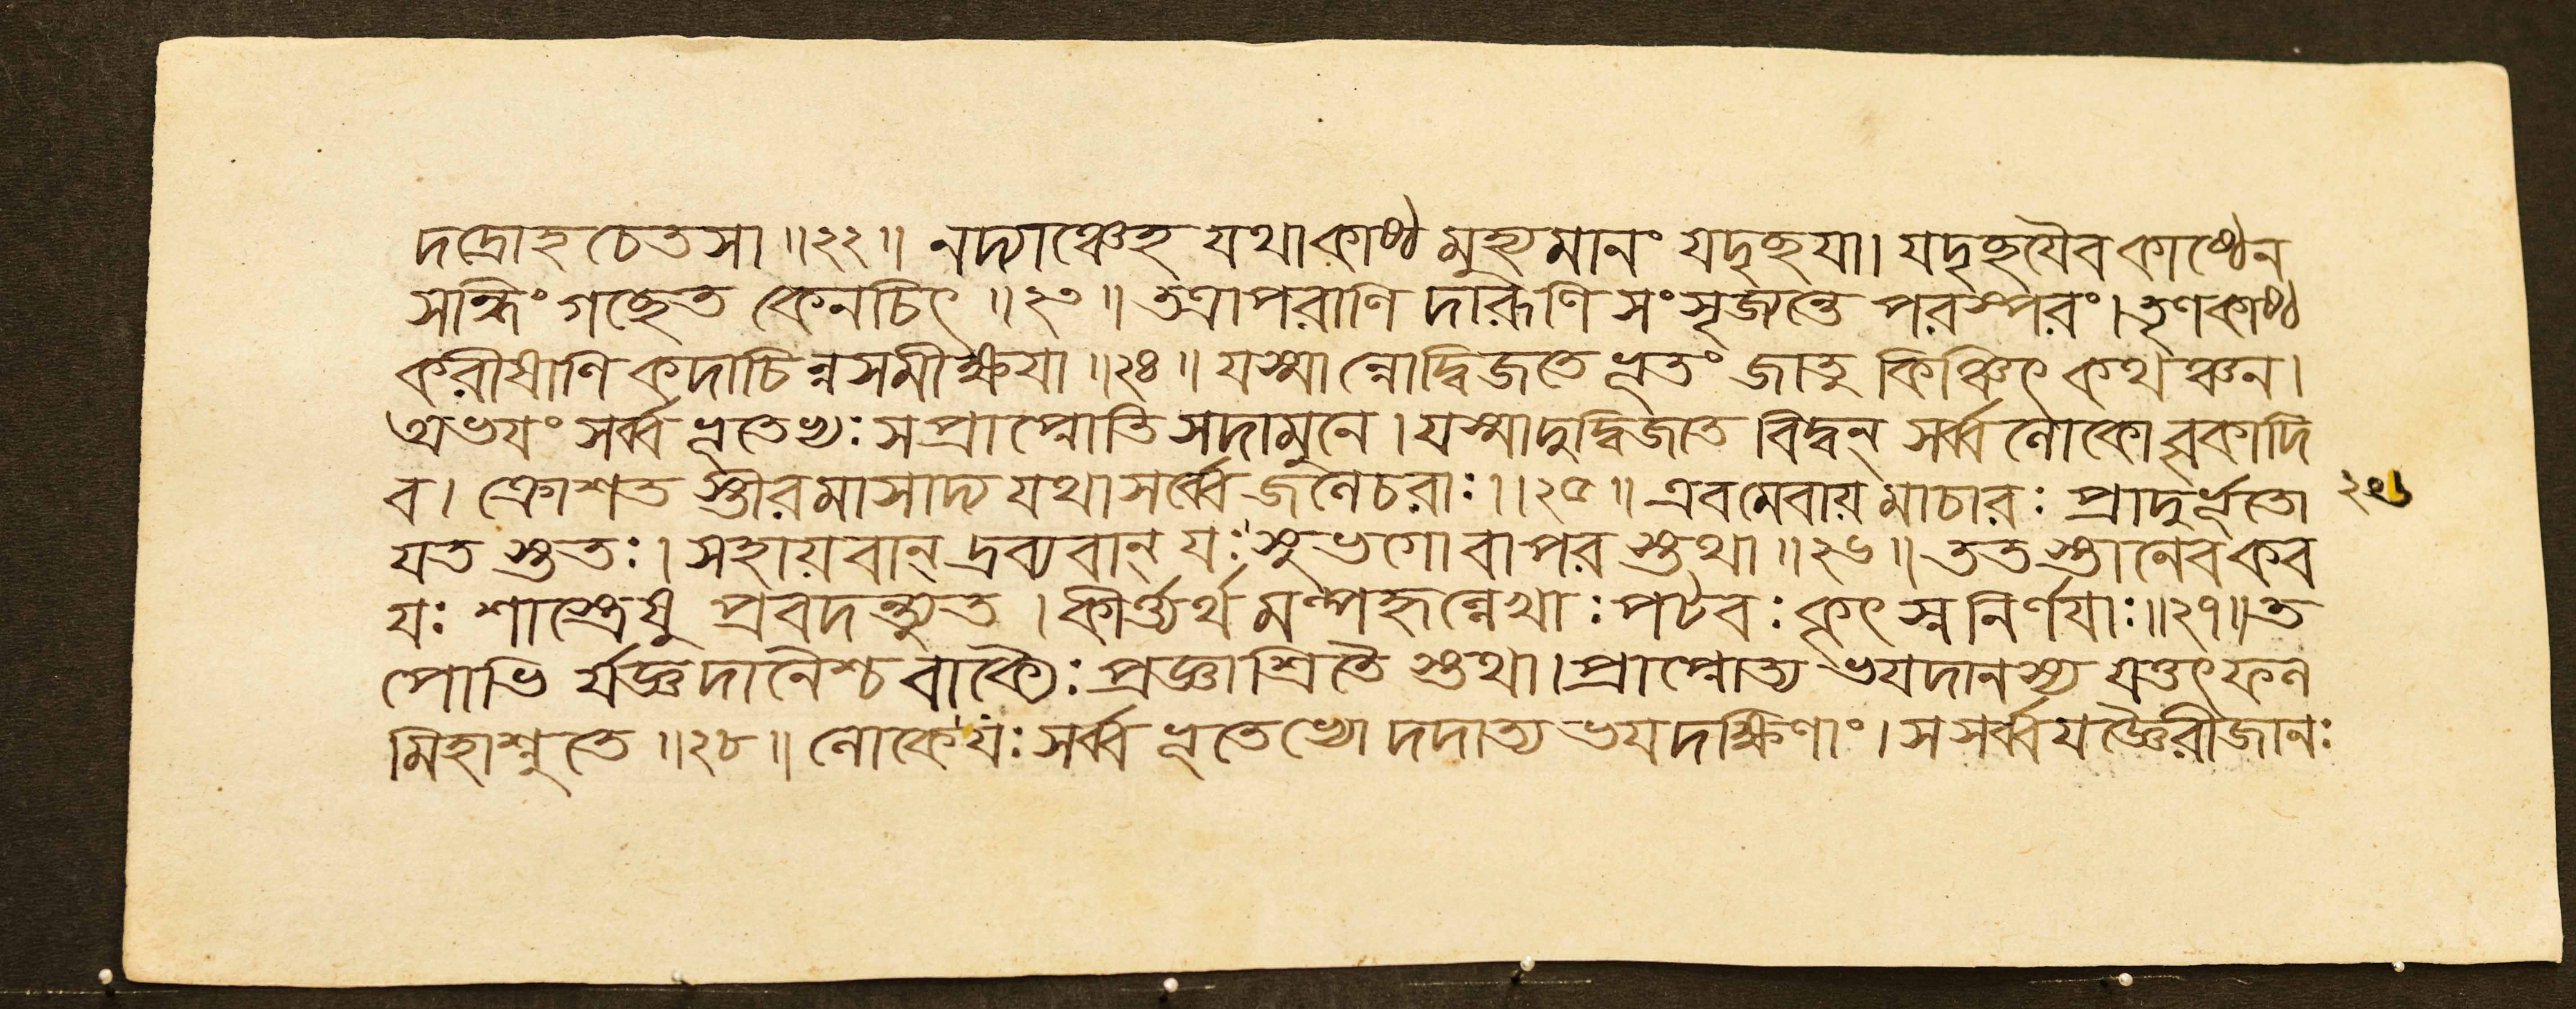 দদ্রোহ চেতসা ॥২২॥ নদ্যাঞ্চেহ যথাকাষ্ঠ মুহ্যমানং যদৃছযা। যদৃছযৈব কাষ্ঠেন
সন্ধিং গছেত কেনচিৎ ॥২৩॥ তত্রাপরাণি দারূণি সংসৃজ্যন্তে পরস্পরং। তৃণকাষ্ঠ
করীষাণি কদাচিন্নসমীক্ষযা ॥২৪॥ যস্মান্নোদ্বিজতে ভূতং জাতু কিঞ্চিৎ কথঞ্চন।
অভযং সর্ব্ব ভূতেভ্যঃ সপ্রাপ্নোতি সদামুনে। যস্মাদুদ্বিজতে বিদ্বন্ সর্ব্বলোকোবৃকাদি
ব। ক্রোশত স্তীরমাসাদ্য যথাসর্ব্বে জলেচরাঃ ॥২৫॥ এবমেবায়মাচারঃ প্রাদুর্ভূতো
যত স্ততঃ। সহায়বান্ দ্রব্যবান্ যঃ সুভগোবাপর স্তথা ॥২৬॥ তত স্তানেব কব
যঃ শাস্ত্রেষু প্রবদন্ত্যুত। কীর্ত্ত্যর্থমল্পহৃল্লেখাঃ পটবঃ কৃৎস্ননির্ণযাঃ ॥২৭॥ ত
পোভি র্যজ্ঞদানৈশ্চ বাক্যৈঃ প্রজ্ঞাশ্রিতৈ স্তথা। প্রাপ্নোত্য ভযদানস্য যত্তৎফল
মিহাশ্নুতে ॥২৮॥ লোকেযঃ সর্ব্ব ভূতেভ্যো দদাত্য ভযদক্ষিণাং। সসর্ব্বযজ্ঞৈরীজানঃ